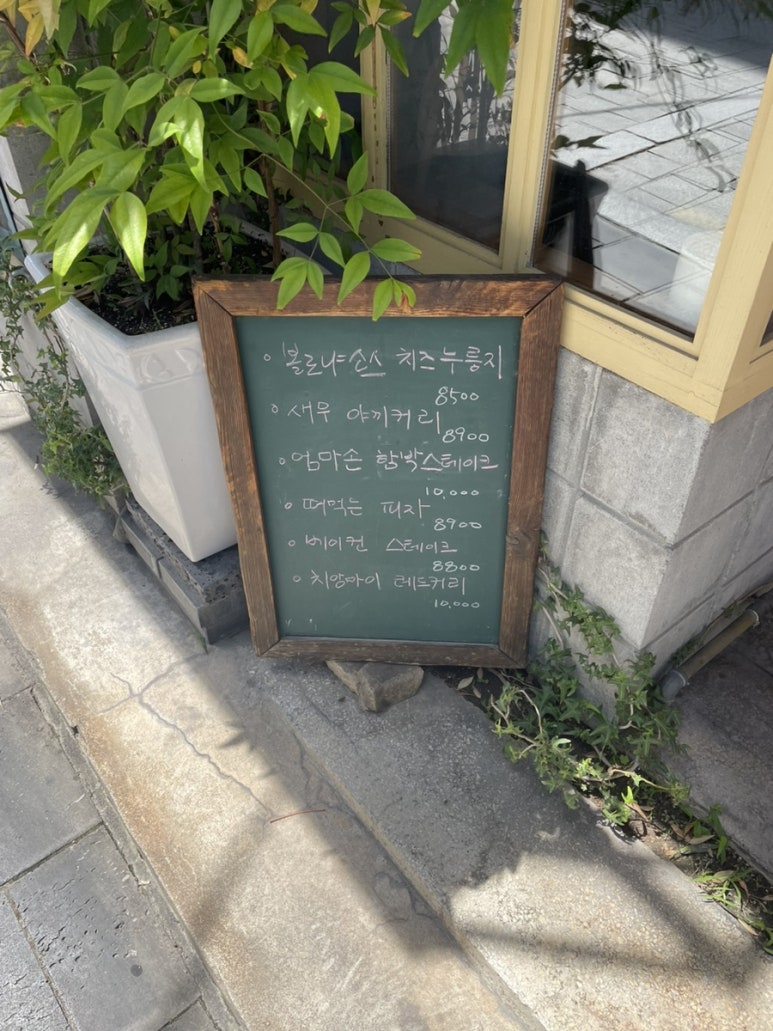 볼로냐소스 치즈누룽지
8500
새우 야끼커리
8900
엄마손 함박스테이크
10,000
떠먹는 피자
8900
베이컨 스테이크
8800
치앙마이 레드커리
10,000